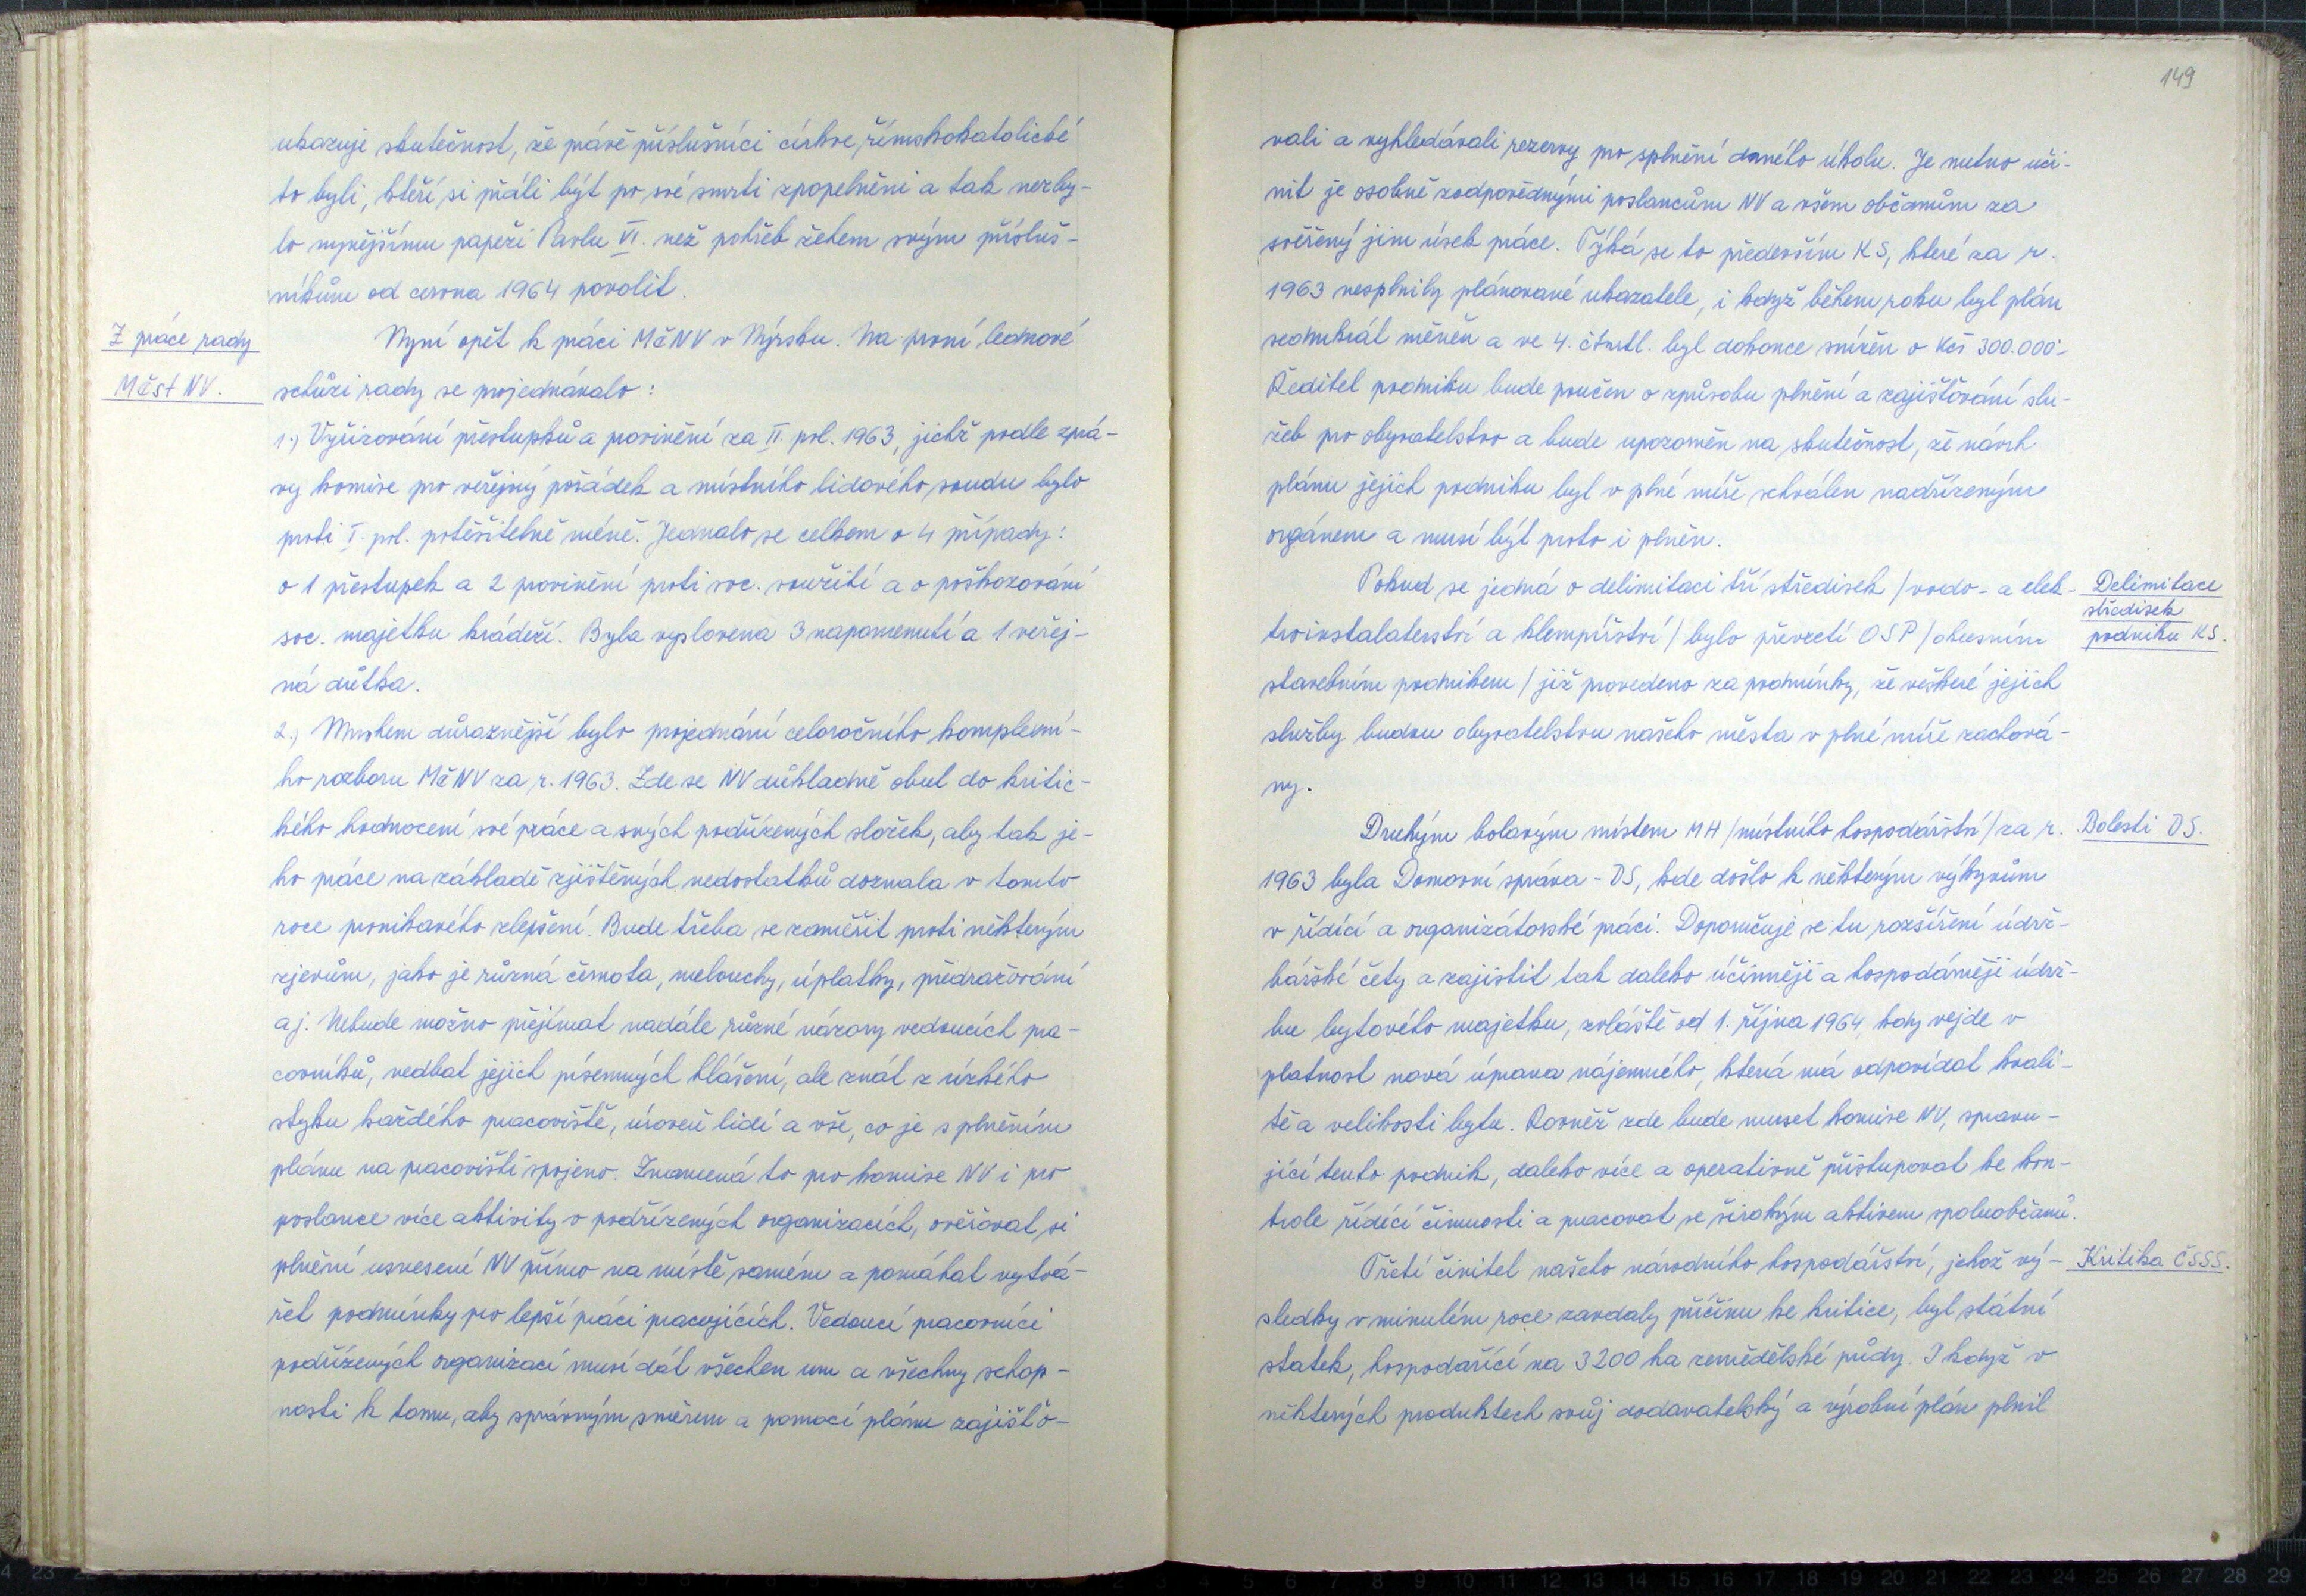 ukazuje skutečnost, že právě příslušníci církve římskokatolické
to byli, kteří si přáli být po své smrti zpopelněni a tak nezby-
lo nynějšímu papeži Pavlu VI. než pohřeb žehem svým přísluš-
níkům od června 1964 povolit.
Z práce rady
Měst NV.
Nyní opět k práci MěNV v Nýrsku. Na první lednové
schůzi rady se projednávalo:
1.) Vyřizování přestupků a provinění za II. pol. 1963, jichž podle zprá-
vy komise pro veřejný pořádek a místního lidového soudu bylo
proti I. pol. potěšitelně méně. Jednalo se celkem o 4 případy:
o 1 přestupek a 2 provinění proti soc. soužití a o poškozování
soc. majetku krádeží. Byla vyslovena 3 napomenutí a 1 veřej-
ná důtka.
2.) Mnohem důraznější bylo projednání celoročního komplexní-
ho rozboru MěNV za r. 1963. Zde se NV důkladně obul do kritic-
kého hodnocení své práce a svých podřízených složek, aby tak je-
ho práce na základě zjištěných nedostatků doznala v tomto
roce pronikavého zlepšení. Bude třeba se zaměřit proti některým
zjevům, jako je různá černota, melouchy, úplatky, předražování
aj. Nebude možno přejímat nadále různé názory vedoucích pra-
covníků, nedbat jejich písemných hlášení, ale znát z úzkého
styku každého pracoviště, úroveň lidí a vše, co je s plněním
plánu na pracovišti spojeno. Znamená to pro komise NV i pro
poslance více aktivity v podřízených organizacích, ověřovat si
plnění usnesení NV přímo na místě samém a pomáhat vytvá-
řet podmínky pro lepší práci pracujících. Vedoucí pracovníci
podřízených organizací musí dát všechen um a všechny schop-
nosti k tomu, aby správným směrem a pomocí plánu zajišťo-
149
vali a vyhledávali rezervy pro splnění daného úkolu. Je nutno uči-
nit je osobně zodpovědnými poslancům NV a všem občanům za
svěřený jim úsek práce. Týká se to především KS, které za r.
1963 nesplnily plánované ukazatele, i když během roku byl plán
sedmkrát měněn a ve 4. čtvrtl. byl dokonce snížen o Kčs 300.000.-
Ředitel podniku bude poučen o způsobu plnění a zajišťování slu-
žeb pro obyvatelstvo a bude upozorněn na skutečnost, že návrh
plánu jejich podniku byl v plné míře schválen nadřízeným
orgánem a musí být proto i plněn.
Pokud se jedná o delimitaci tří středisek /vodo- a elek-
troinstalaterství a klempířství/ bylo převzetí OSP /okresním
stavebním podnikem/ již provedeno za podmínky, že veškeré jejich
služby budou obyvatelstvu našeho města v plné míře zachová-
ny.
Delimitace
středisek
podniku KS.
Druhým bolavým místem MH /místního hospodářství/ za r.
1963 byla Domovní správa - DS, kde došlo k některým výkyvům
v řídící a organizátorské práci. Doporučuje se tu rozšíření údrž-
bářské čety a zajistit tak daleko účinněji a hospodárněji údrž-
bu bytového majetku, zvláště od 1. října 1964, kdy vejde v
platnost nová úprava nájemného, která má odpovídat kvali-
tě a velikosti bytu. Rovněž zde bude muset komise NV, spravu-
jící tento podnik, daleko více a operativně přistupovat ke kon-
trole řídící činnosti a pracovat se širokým aktivem spoluobčanů.
Bolesti DS.
Třetí činitel našeho národního hospodářství, jehož vý-
sledky v minulém roce zavdaly příčinu ke kritice, byl státní
statek, hospodařící na 3200 ha zemědělské půdy. I když v
některých produktech svůj dodavatelský a výrobní plán plnil
Kritika ČSSS.